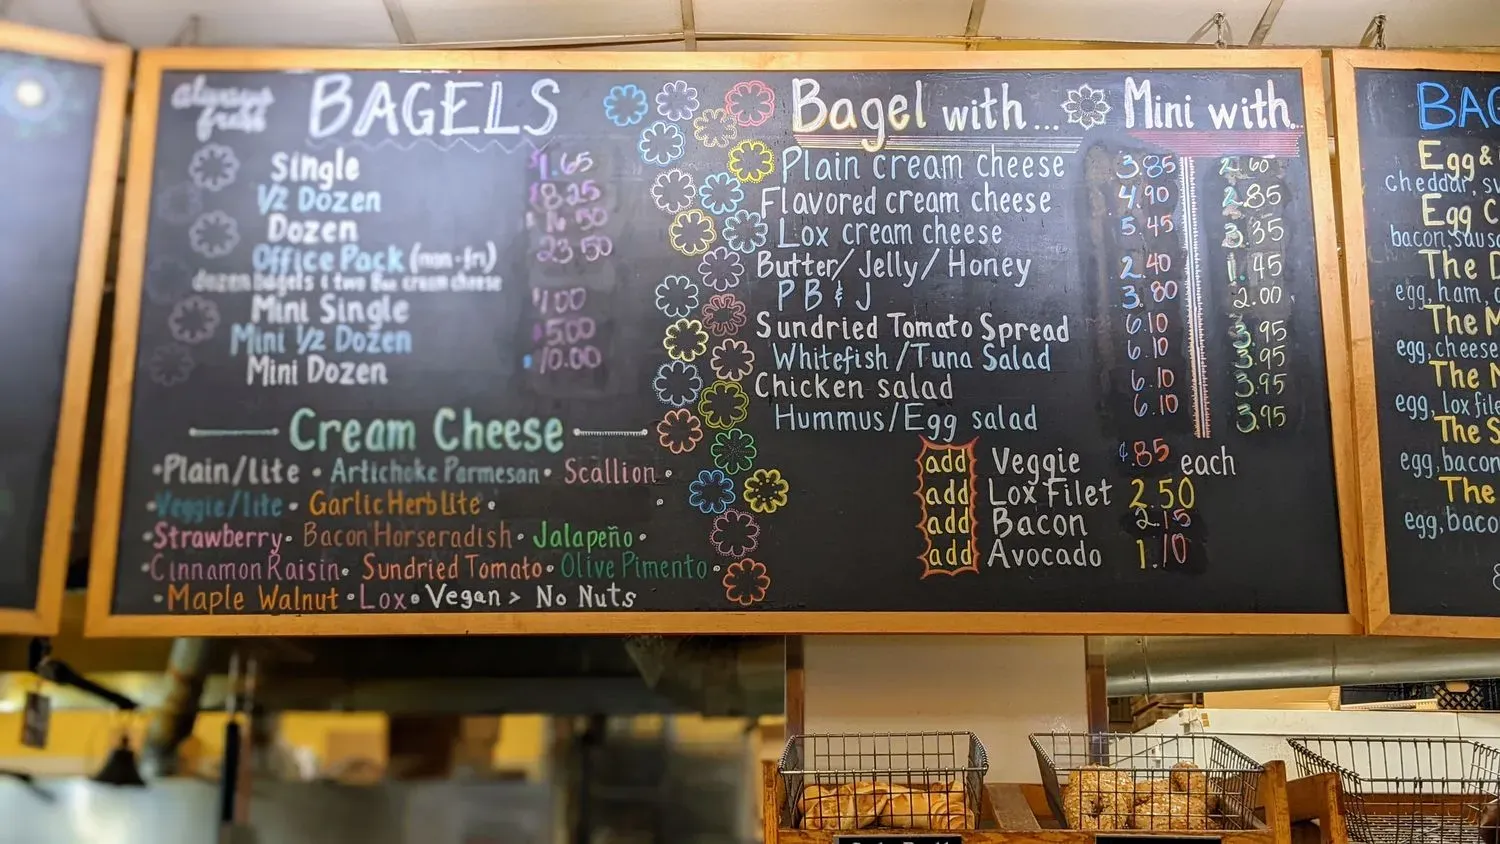 always
fresh
BAGELS
Single $1.65
1/2 Dozen $8.25
Dozen $16.50
Office Pack (mon-fri) 23.50
dozen bagels & two 8oz cream cheese
Mini Single $1.00
Mini 1/2 Dozen $5.00
Mini Dozen $10.00
Cream Cheese
•Plain/lite • Artichoke Parmesan • Scallion •
•Veggie/lite • Garlic Herb Lite •
•Strawberry • Bacon Horseradish • Jalapeño •
•Cinnamon Raisin • Sundried Tomato • Olive Pimento •
•Maple Walnut • Lox • Vegan > No Nuts
Bagel with... Mini with...
Plain cream cheese 3.85 2.60
Flavored cream cheese 4.90 2.85
Lox cream cheese 5.45 3.35
Butter/Jelly/Honey 2.40 1.45
PB & J 3.80 2.00
Sundried Tomato Spread 6.10 3.95
Whitefish/Tuna Salad 6.10 3.95
Chicken salad 6.10 3.95
Hummus/Egg salad 6.10 3.95
add Veggie .85 each
add Lox Filet 2.50
add Bacon 2.15
add Avocado 1.10
BAG
Egg &
cheddar, sw
Egg C
bacon, sausa
The D
egg, ham, c
The M
egg, cheese
The N
egg, lox file
The S
egg, bacon
The
egg, baco